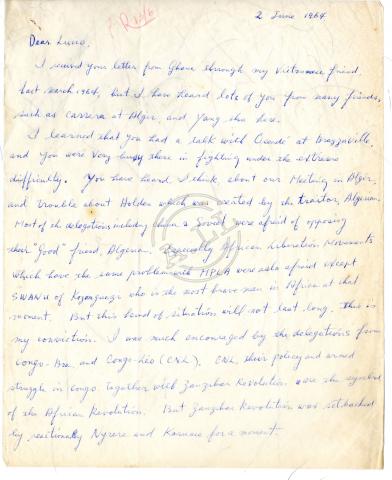 AR 146
2 June 1964
Dear Lucio,
I received your letter from Ghana through my Vietnamese friend,
last march 1964, but I have heard lots of you from many friends,
such as Carrera at Alger, and Yang Sha here.
I learned that you had a talk with at Brazzaville,
and you were very busy there in fighting under the extreme
difficulty. You have heard, I think, about our Meeting in Algir,
and trouble about Holden which was created by the traitor, Algerian.
Most of the delegations including China & Soviet were afraid of opposing
their "Good" friend, Algeria. Especially African Liberation Movements
which have the same problem with MPLA were also afraid except
SWANU of Kozonguizi who is the most brave man in Africa at that
moment. But this kind of situation will not last long. This is
my conviction. I was much encouraged by the delegations from
Congo-Bra and Congo-Leo (CNL). CNL, their policy and armed
struggle in Congo together with Zanzibar Revolution were the symbol
of the African Revolution. But Zanzibar Revolution was setbacked
by reactionally Nyrere and Karume for a moment.